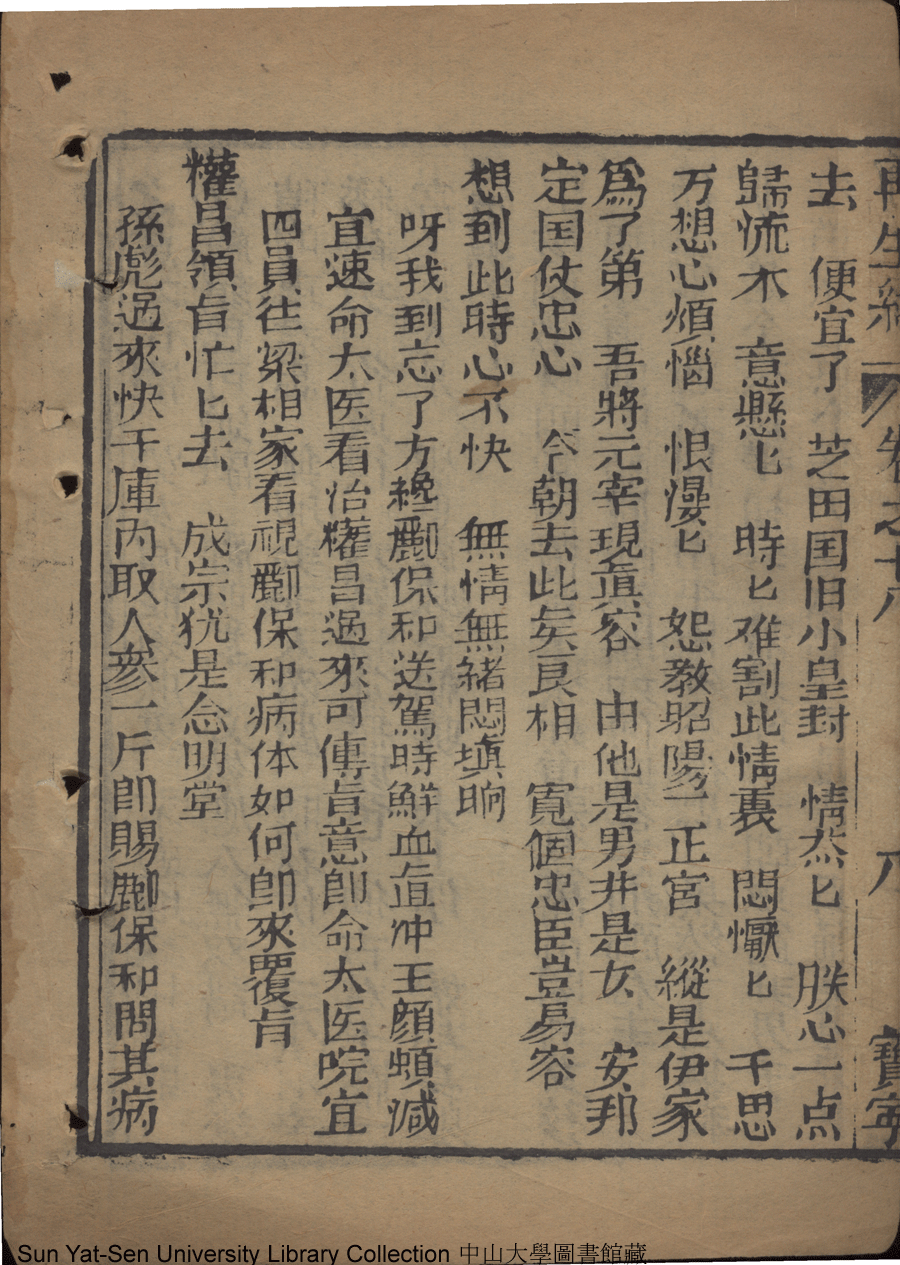 再生緣 卷之十八 八 寶寧
去 便宜了 芝田国旧小皇封 情杰匕 朕心一点
歸流木 意懸匕 時匕难割此情裏 悶懨匕 千思
万想心煩惱 恨漫匕 怨教昭陽一正宮 縱是伊家
爲了第 吾將元宰現眞容 由他是男并是女 安邦
定国仗忠心 今朝去此矣良相 寛個忠臣豈易容
想到此時心不快 無情無緒悶塡晌
呀我到忘了方纔酈保和送駕時鮮血直冲王顔頻减
宜速命太医看治權昌過來可傳旨意即命太医院宜
四員往梁相家看視酈保和病体如何即來覆旨
權昌領旨忙匕去 成宗犹是念明堂
孫彪過來快干庫内取人參一斤即賜酈保和問其病
Sun Yat-Sen University Library Collection 中山大學圖書館藏